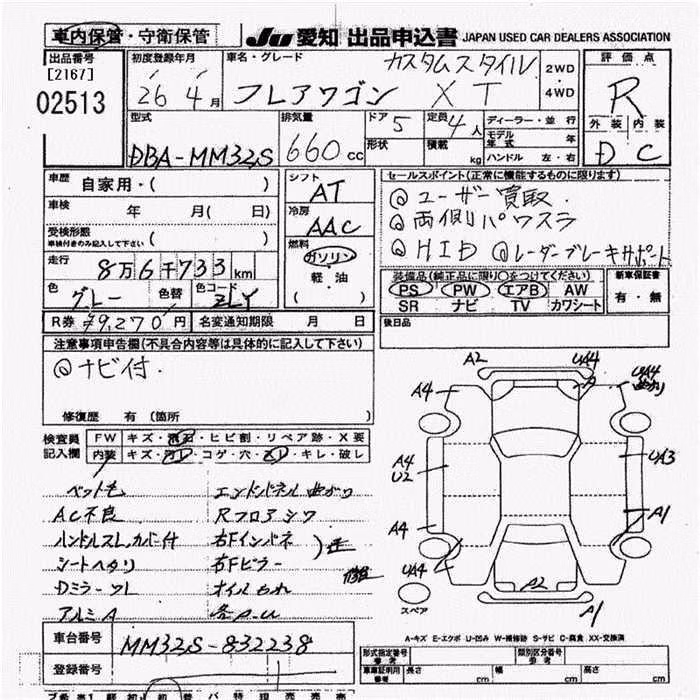 車内保管・守衛保管 JU 愛知 出品申込書 JAPAN USED CAR DEALERS ASSOCIATION
出品番号 [2167] 02513
初度登録年月 26 4月
車名・グレード フレアワゴン カスタムスタイル XT
2WD・4WD
評価点 R
外装 内装
D C
型式 DBA-MM32S
排気量 660cc
ドア 5
形状
定員 4人
積載 kg
ディーラー・並行
モデル年式 年
ハンドル 左・右
車歴 自家用・( )
車検 年 月( 日)
受検形態 ( )
車検付きのみ記入して下さい
走行 8万6千733km
色 グレー 色替 色コード ZLY
シフト AT
冷房 AAC
燃料 ガソリン
軽・油
( )
セールスポイント(正常に機能するものに限ります)
@ユーザー買取.
@両側パワスラ
@HID @レーダーブレーキサポート
装備品(純正品に限り○をつけてください)
PS PW エアB AW
SR ナビ TV カワシート
新車保証書
有・無
R券 ¥9,270円 名変通知期限 月 日
後日品
注意事項申告欄(不具合内容等は具体的に記入して下さい)
@ナビ付.
修復歴 有 (箇所 )
検査員記入欄
FW キズ・飛石・ヒビ割・リペア跡・X要
内装 キズ・汚レ・コゲ・穴・スレ・キレ・破レ
ペット毛 エンドパネル曲がり
AC不良 Rフロアシワ
ハンドルスレ,カバー付 右Fインパネ
シートヘタリ 右Fピラー
Dミラースレ オイルもれ
アルミA 各A-U
A2 UA4
A4
UA4 曲がり
A4
U2
UA3
A4
A1
UA4
UA4
A2
A1
スペア
A-キズ E-エクボ U-凹み W-補修跡 S-サビ C-腐食 XX-交換済
車台番号 MM32S-832238
登録番号
形式指定番号
類別区分番号
参考
参考
車車証明用 参考
長さ cm 幅 cm 高さ cm